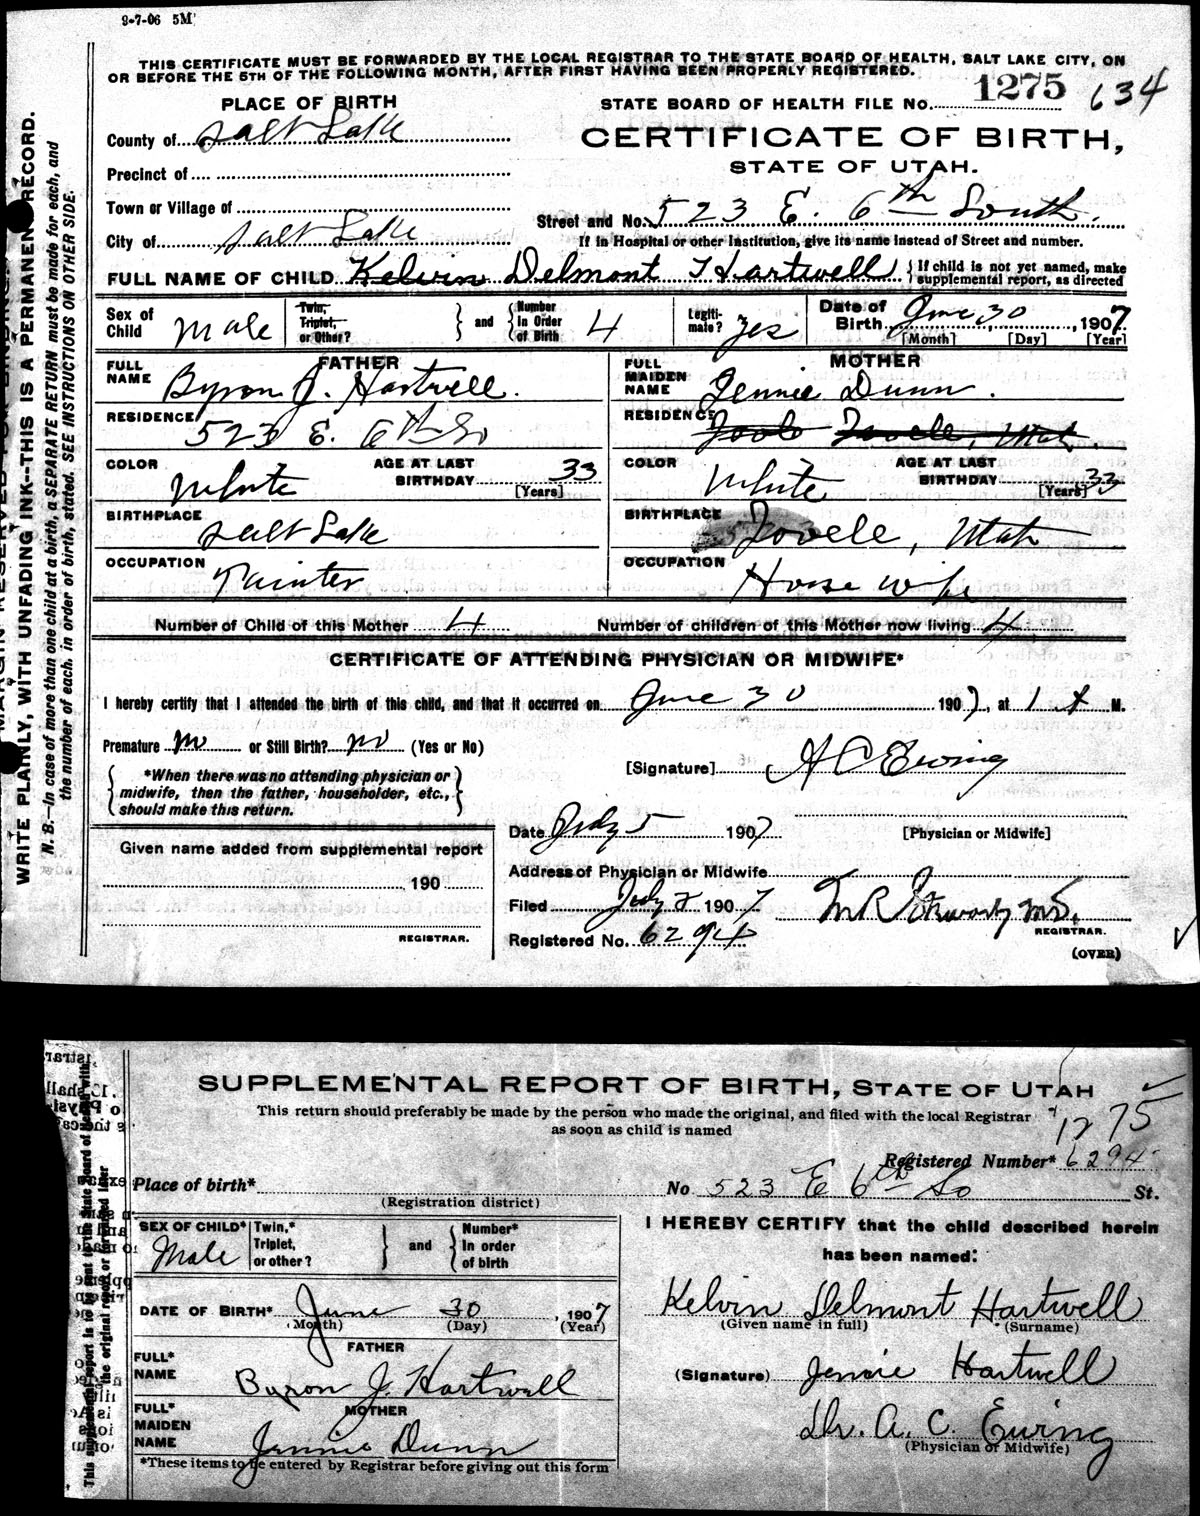 9-7-06 5M
THIS CERTIFICATE MUST BE FORWARDED BY THE LOCAL REGISTRAR TO THE STATE BOARD OF HEALTH, SALT LAKE CITY, ON
OR BEFORE THE 5TH OF THE FOLLOWING MONTH, AFTER FIRST HAVING BEEN PROPERLY REGISTERED.
WRITE PLAINLY, WITH UNFADING INK--THIS IS A PERMANENT RECORD.
N. B.—In case of more than one child at a birth, a SEPARATE RETURN must be made for each, and
the number of each, in order of birth, stated. SEE INSTRUCTIONS ON OTHER SIDE.
STATE BOARD OF HEALTH FILE No. 1275 634
CERTIFICATE OF BIRTH,
STATE OF UTAH.
PLACE OF BIRTH
County of Salt Lake
Precinct of
Town or Village of
City of Salt Lake
Street and No. 523 E. 6th South.
If in Hospital or other Institution, give its name instead of Street and number.
FULL NAME OF CHILD Kelvin Delmont Hartwell { If child is not yet named, make supplemental report, as directed
Sex of Child Male Twin, Triplet, or Other? } and { Number in Order of Birth 4 Legitimate? Yes Date of Birth June 30, 1907
[Month] [Day] [Year]
FATHER
FULL NAME Byron J. Hartwell.
RESIDENCE 523 E. 6th So
COLOR White AGE AT LAST BIRTHDAY 33 [Years]
BIRTHPLACE Salt Lake
OCCUPATION Painter
MOTHER
FULL MAIDEN NAME Jennie Dunn.
RESIDENCE Utah.
COLOR White AGE AT LAST BIRTHDAY 33 [Years]
BIRTHPLACE Tooele, Utah
OCCUPATION House wife
Number of Child of this Mother 4 Number of children of this Mother now living 4
CERTIFICATE OF ATTENDING PHYSICIAN OR MIDWIFE*
I hereby certify that I attended the birth of this child, and that it occurred on June 30 1907, at 1 A M.
Premature no or Still Birth? no (Yes or No)
*When there was no attending physician or
midwife, then the father, householder, etc.,
should make this return.
[Signature] A C Ewing
[Physician or Midwife]
Given name added from supplemental report
190
REGISTRAR.
Date July 5 1907
Address of Physician or Midwife
Filed July 1907
M.D.
REGISTRAR.
Registered No. 6294
(OVER)
SUPPLEMENTAL REPORT OF BIRTH, STATE OF UTAH
This return should preferably be made by the person who made the original, and filed with the local Registrar
as soon as child is named
1275
Registered Number* 6294
Place of birth* No 523 E 6th So St.
(Registration district)
SEX OF CHILD* Male Twin,* Triplet, or other? } and { Number* In order of birth
DATE OF BIRTH* June 30, 1907
(Month) (Day) (Year)
FATHER
FULL* NAME Byron J. Hartwell
MOTHER
FULL* MAIDEN NAME Jennie Dunn
*These items to be entered by Registrar before giving out this form
I HEREBY CERTIFY that the child described herein
has been named:
Kelvin Delmont Hartwell
(Given name in full) (Surname)
(Signature) Jennie Hartwell
Dr. A. C. Ewing
(Physician or Midwife)